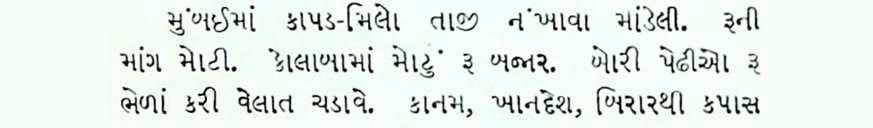 મુંબઈમાં કાપડ-મિલો તાજી નંખાવા માંડેલી. રૂની
માંગ મોટી. કોલાબામાં મોટું રૂ બજાર. બોરી પેઢીઓ રૂ
ભેળાં કરી વેલાત ચડાવે. કાનમ, ખાનદેશ, બિરારથી કપાસ